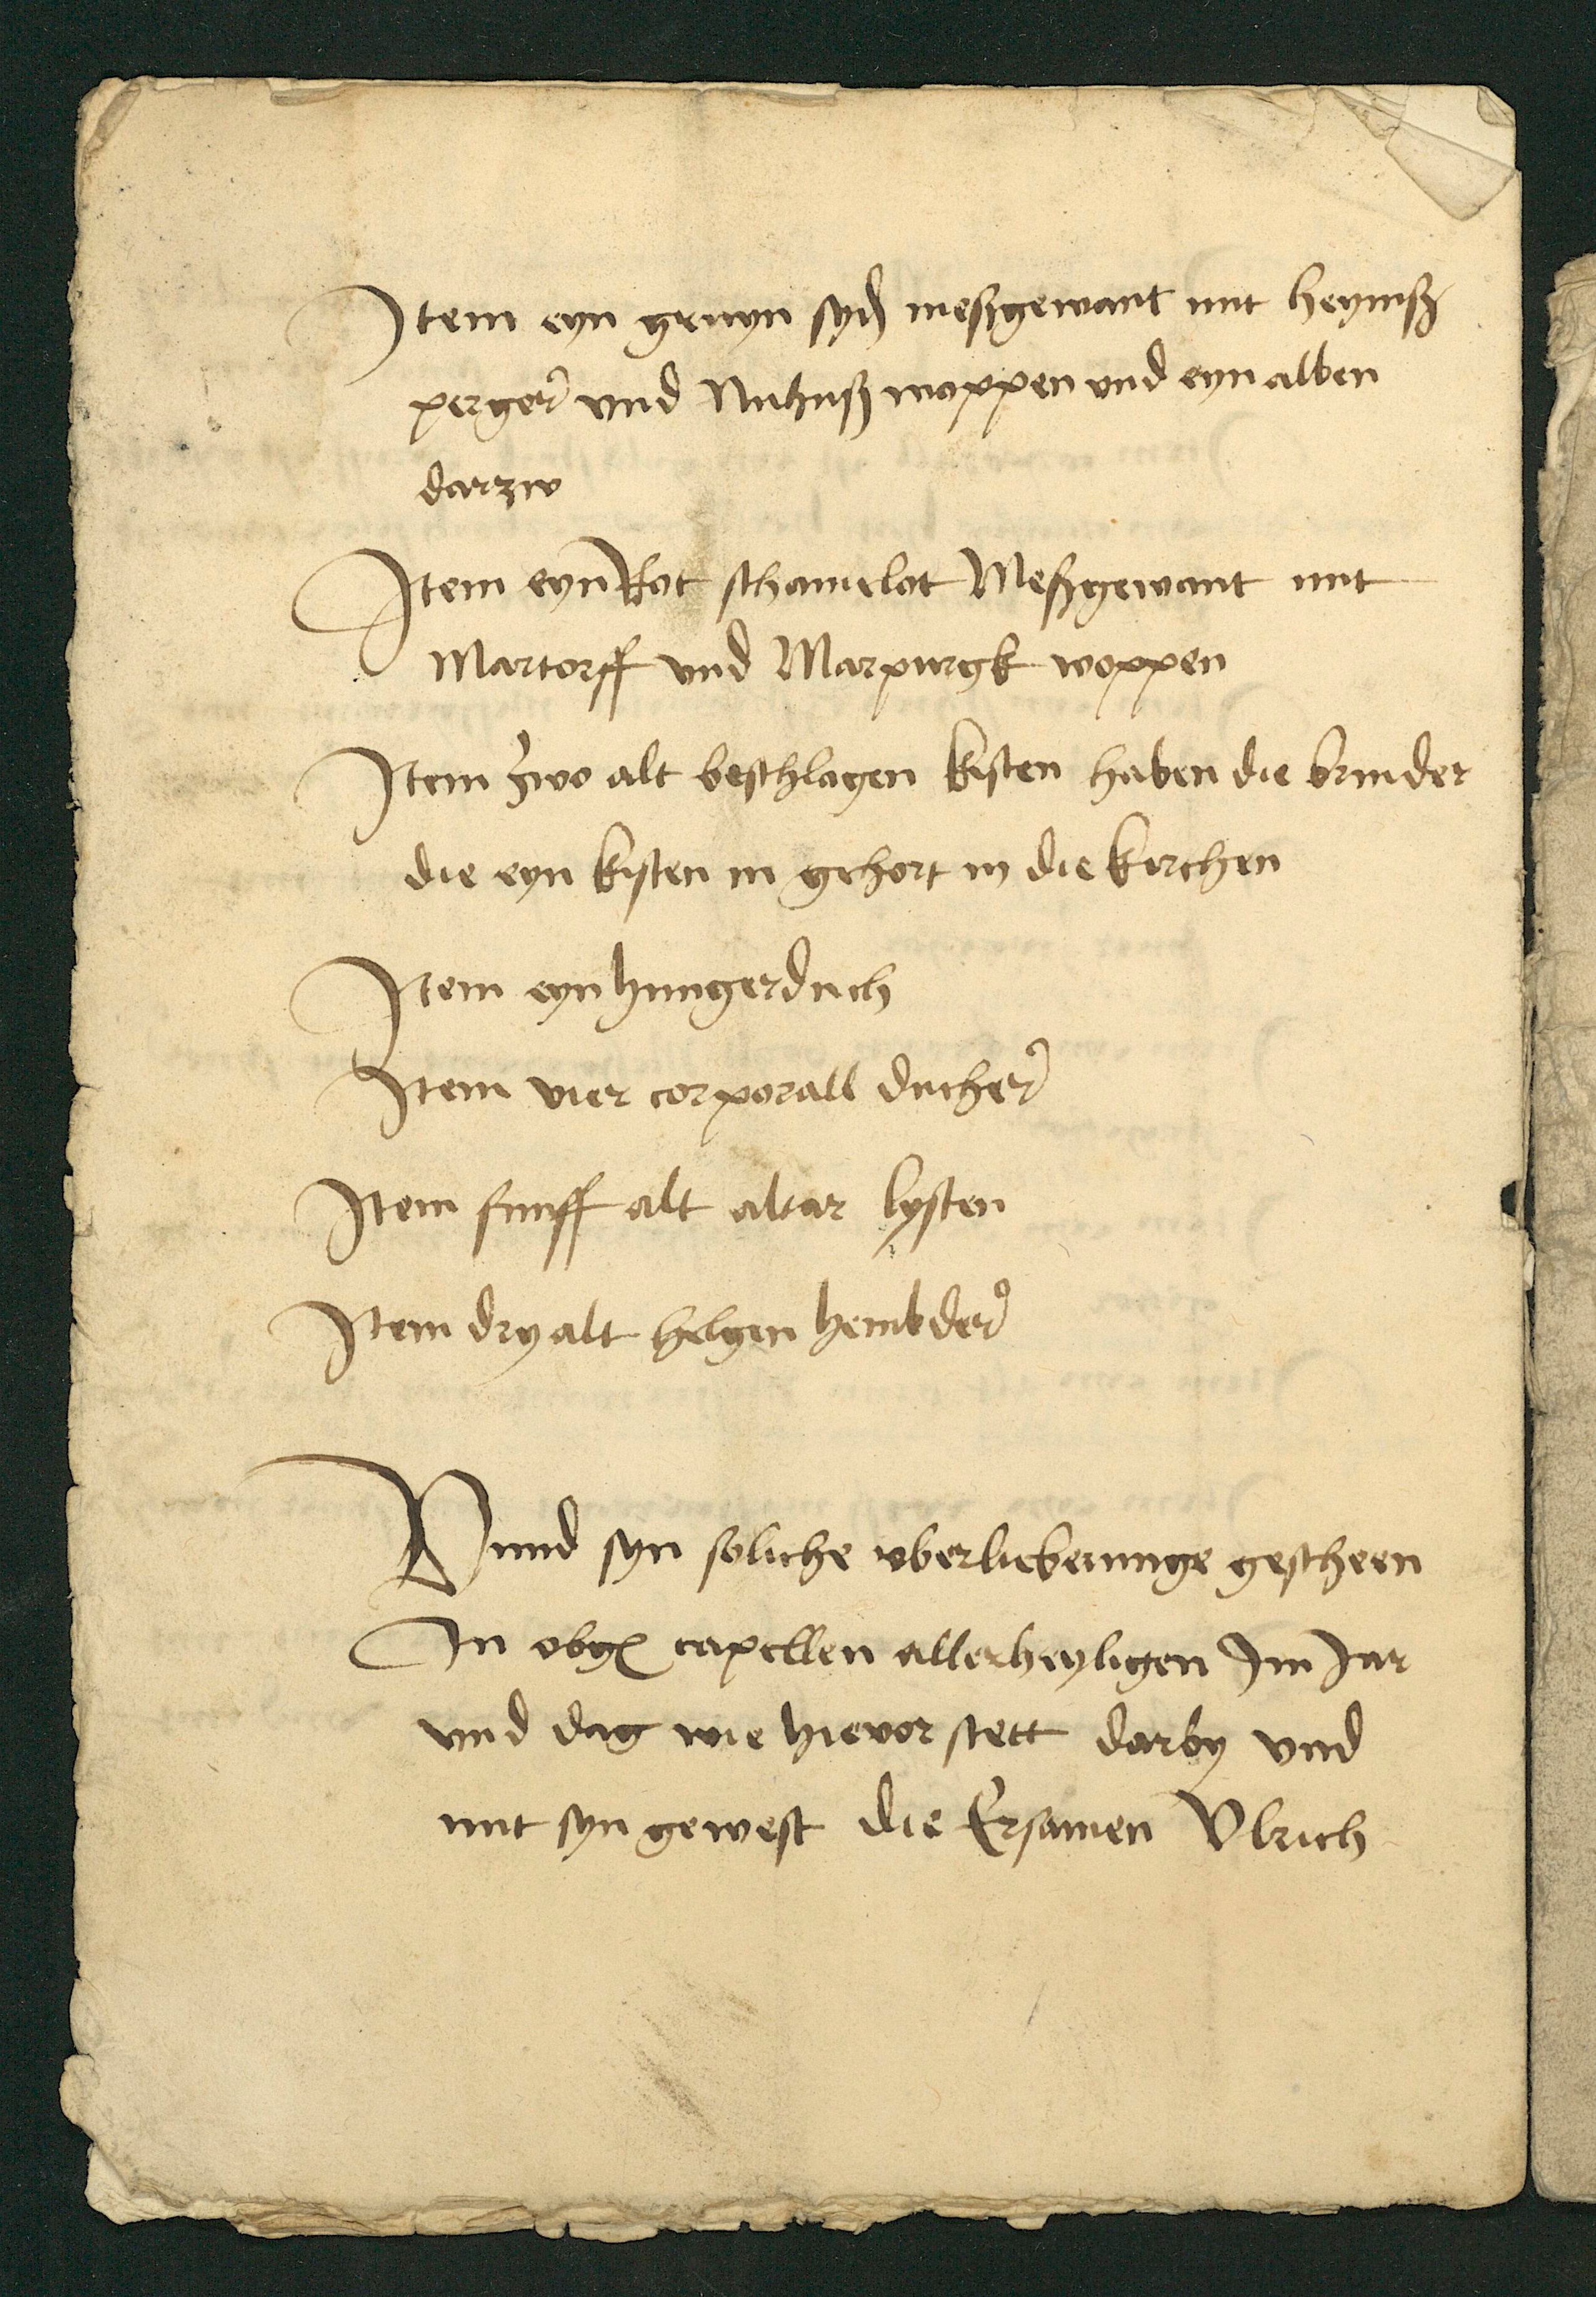 Item eyn gruyn syd meßgewant mit heymß
perger und Nuhuß woppen und eyn alben
darzw
Item eyn Rot schamelot Meßgewant mit
Martorff und Marpurgk woppen
Item zwo alt beschlagen kisten haben die bruder
die eyn kisten in gehort in die kirchen
Item eyn hungerduch
Item vier corporall ducher
Item funff alt altar lysten
Item dry alt helgen hembder
Vnnd syn soliche vberlieberunge gescheen
In obg capellen allerheyligen Im Jar
vnd dag wie hievor stett darby vnd
mit syn gewest die Ersamen Vlrich